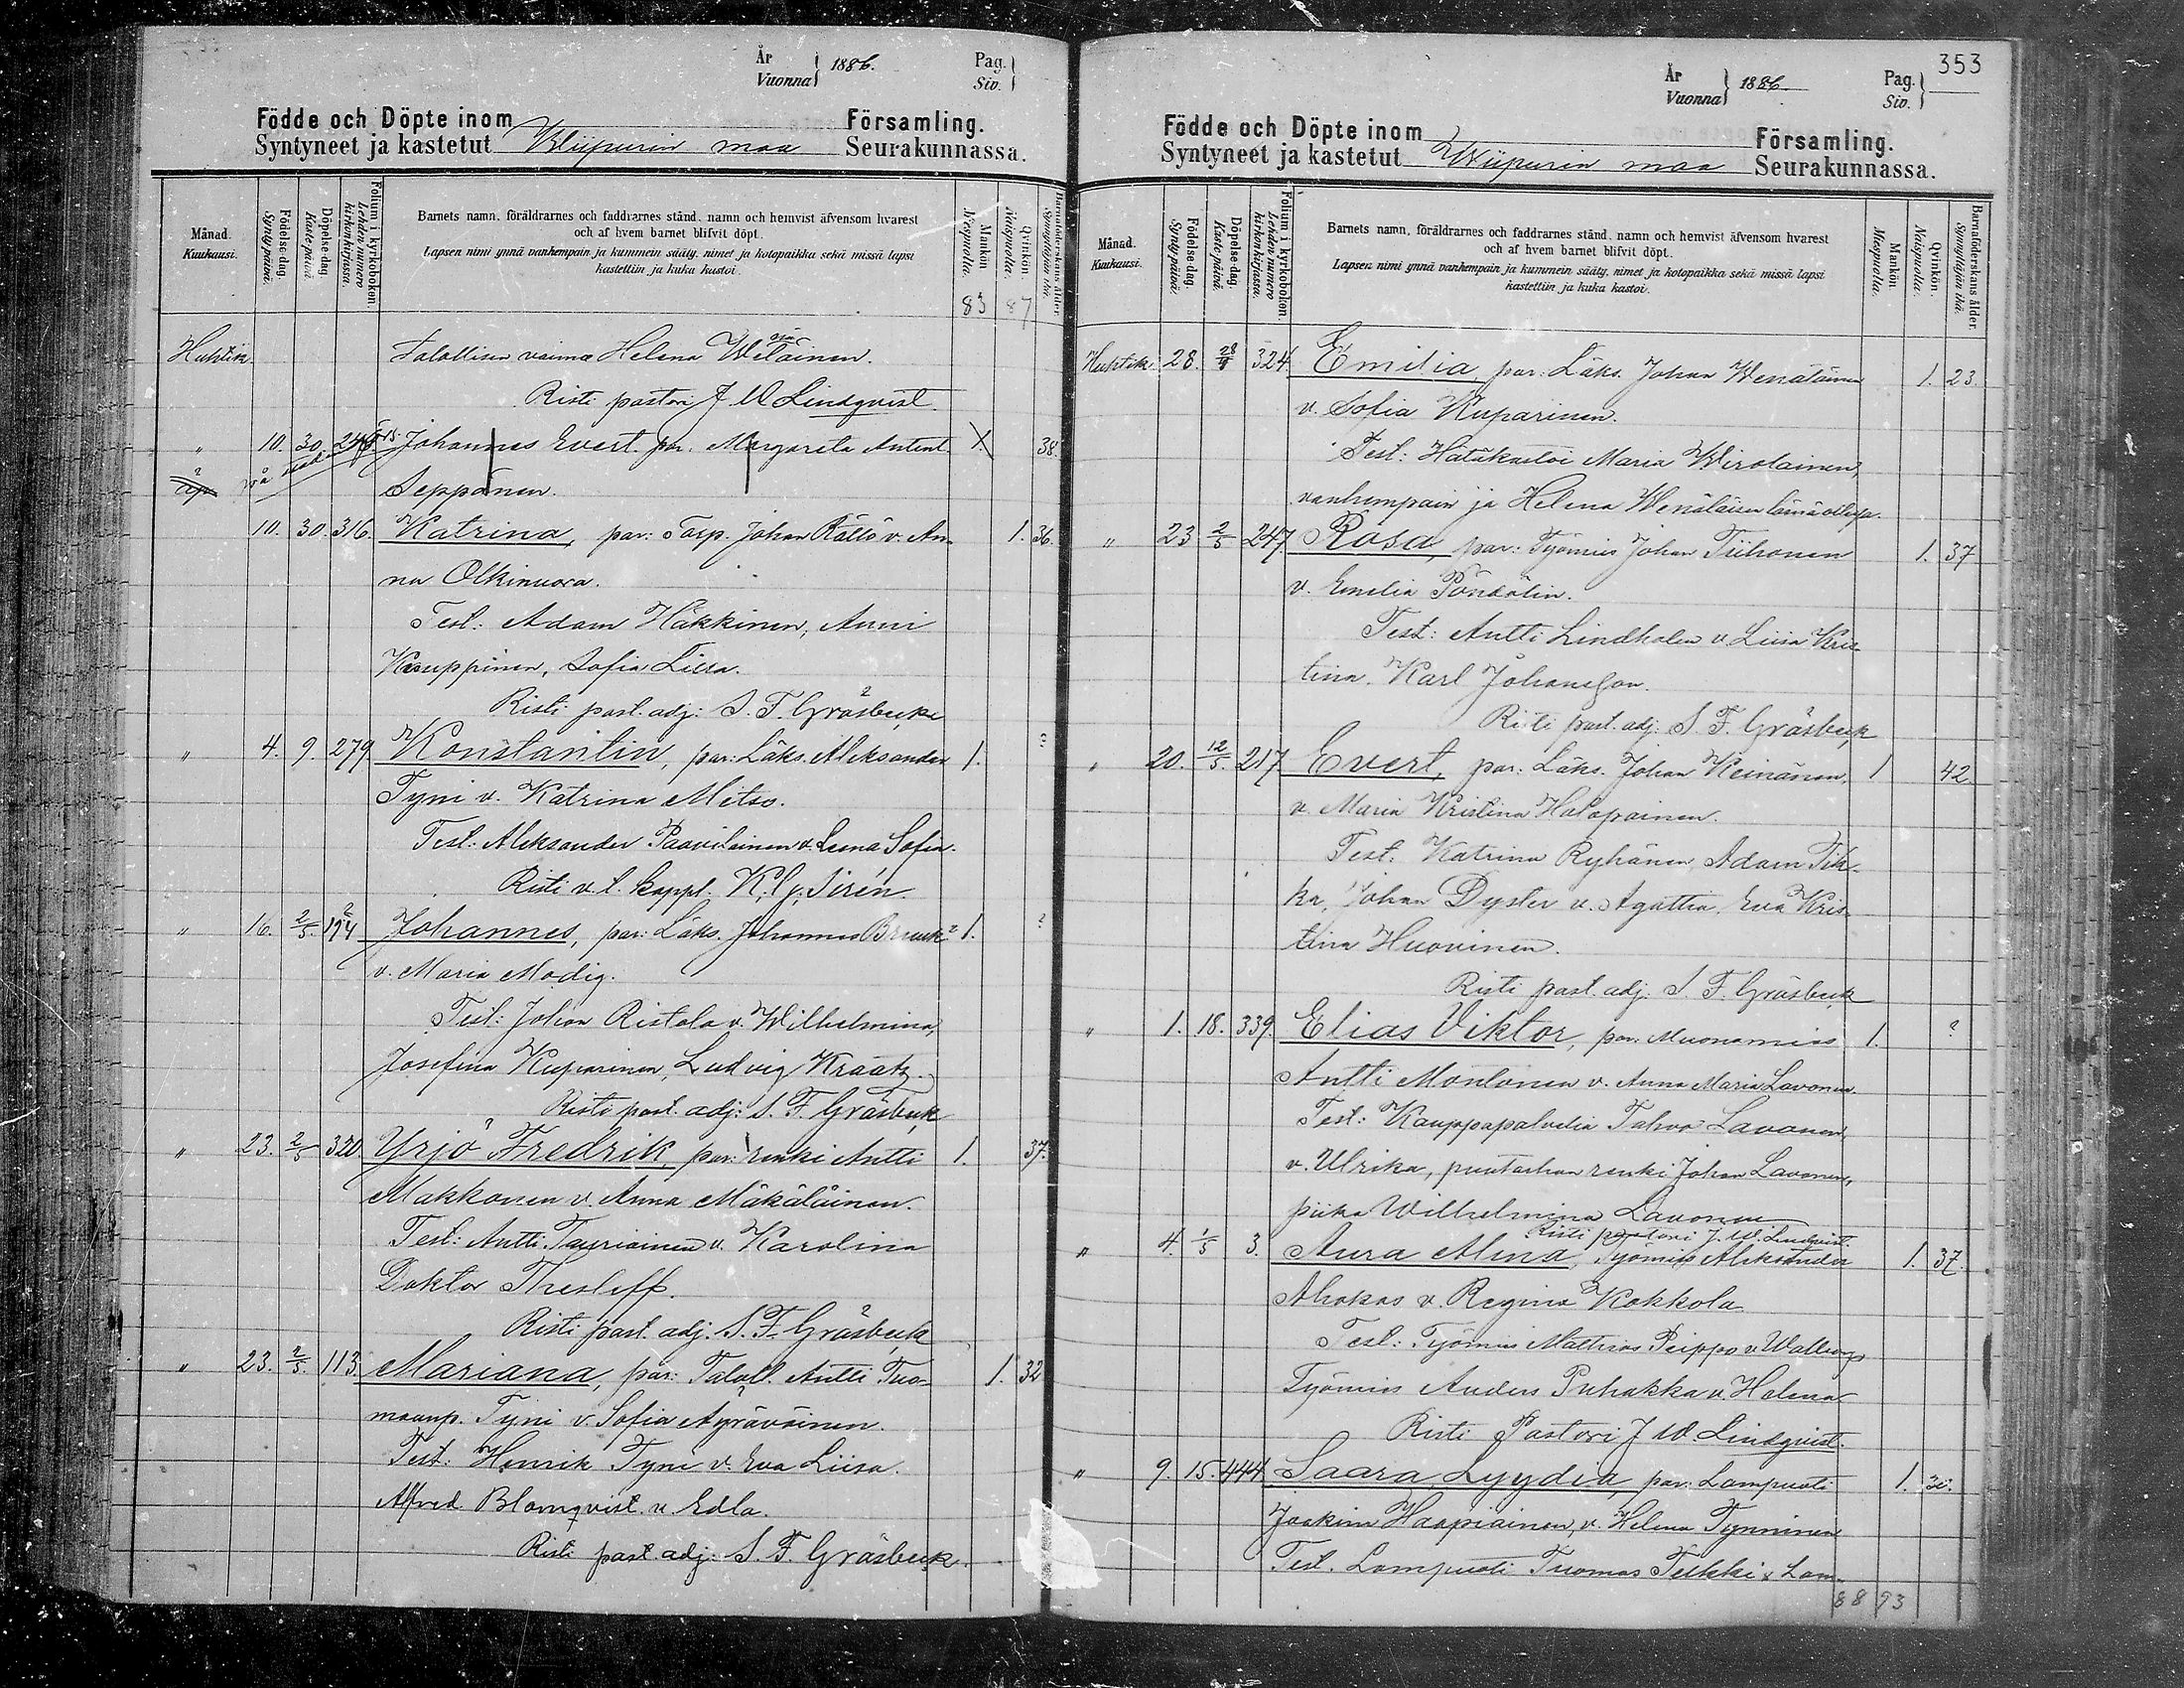 År
Vuonna } 1886.
Pag.
Siv. }
Födde och Döpte inom Församling.
Syntyneet ja kastetut Wiipurin maa Seurakunnassa.
Månad.
Kuukausi.
Födelse-dag.
Syntypäivä.
Döpelse-dag.
Kastepäivä.
Folium i kyrkoboken.
Lehden numero kirkonkirjassa.
Barnets namn, föräldrarnes och faddrarnes stånd, namn och hemvist äfvensom hvarest
och af hvem barnet blifvit döpt.
Lapsen nimi ynnä vanhempain ja kummein sääty, nimet ja kotopaikka sekä missä lapsi
kastettiin ja kuka kastoi.
Mankön
Miespuolia.
Qvinkön.
Naispuolia.
Barnaföderskans ålder.
Synnyttäjän ikä.
83 87
Huhtik. Talollisen vaimo Helena
Risti pastori J W Lindqvist.
" 10. 30. Johannes Evert. par. Margareta Antint. 1. 38.
Seppänen.
10. 30. 316. Katrina, par: Torp. Johan Rällö v. An- 1. 36.
na Olkinuora.
Test: Adam Häkkinen, Anni
Kauppinen, Sofia Liisa.
Risti past. adj: S. F. Gråsbeck
" 4. 9. 279 Konstantin, par: Läks. Aleksander 1. ?
Tyni v. Katrina Metso.
Test: Aleksander Paavilainen v. Leena Sofia.
Risti v. t. kappl. K. G. Sirén.
" 16. 2/5. 194 Johannes, par: Läks. Johannes Bruuk? 1. ?
v. Maria Modig.
Test: Johan Ristola v. Wilhelmina,
Josefina Kuparinen, Ludvig Kraatz.
Risti past. adj: S. F. Gråsbeck
" 23. 2/5 320 Yrjö Fredrik, par: renki Antti 1. 37.
Makkonen v. Anna Mäkäläinen.
Test: Antti Tauriainen v. Karolina
Doktor Thesleff.
Risti past. adj. S. F. Gråsbeck
" 23. 2/5. 113. Mariana, par: Taloll. Antti Tuo- 1. 32
maanp. Tyni v. Sofia Äyräväinen.
Test: Henrik Tyni v. Eva Liisa.
Alfred Blomqvist v. Edla.
Risti past. adj: S. F. Gråsbeck.
353
År
Vuonna } 1886.
Pag.
Siv. }
Födde och Döpte inom Församling.
Syntyneet ja kastetut Wiipurin maa Seurakunnassa.
Månad.
Kuukausi.
Födelse-dag.
Syntypäivä.
Döpelse-dag.
Kastepäivä.
Folium i kyrkoboken.
Lehden numero kirkonkirjassa.
Barnets namn, föräldrarnes och faddrarnes stånd, namn och hemvist äfvensom hvarest
och af hvem barnet blifvit döpt.
Lapsen nimi ynnä vanhempain ja kummein sääty, nimet ja kotopaikka sekä missä lapsi
kastettiin ja kuka kastoi.
Mankön
Miespuolia.
Qvinkön.
Naispuolia.
Barnaföderskans ålder.
Synnyttäjän ikä.
Huhtik. 28. 28/4 324 Emilia, par: Läks. Johan Wenäläinen 1. 23.
v. Sofia Kuparinen.
Test: Hätäkastoi Maria Wirolainen,
vanhempain ja Helena Wenäläisen läsnäollessa.
" 23 2/5 247 Rosa, par: Työmies Johan Tiihonen 1. 37
v. Emelia Pöndölin.
Test: Antti Lindholm v. Liisa Kris-
tina. Karl Johansson.
Risti past. adj: S. F. Gråsbeck
" 20. 12/5. 217 Evert, par: Läks. Johan Keinänen, 1 42.
v. Maria Kristina Holopainen.
Test: Katrina Ryhänen, Adam Tik-
ka, Johan Dyster v. Agatha, Eva Kris-
tina Huovinen.
Risti past. adj. S. F. Gråsbeck
" 1. 18. 339. Elias Viktor, par: Muonamies 1. ?
Antti Montonen v. Anna Maria Lavonen.
Test: Kauppapalvelia Tahvo Lavonen,
v. Ulrika, puutarhan renki Johan Lavonen,
piika Wilhelmina Lavonen
Risti pastori J. W. Lindqvist.
" 4. 1/5 3. Aura Alma, Työmies Aleksander 1. 37.
Ahokas v. Regina Kokkola
Test: Työmies Matthias Peippo v. Walborg,
Työmies Anders Puhakka v. Helena
Risti Pastori J W. Lindqvist.
" 9. 15. 444 Saara Lyydia, par: Lampuoti 1. 32.
Joakim Haapiainen, v. Helena Tynninen
Test. Lampuoti Tuomas Teikki v. Lam-
88 93